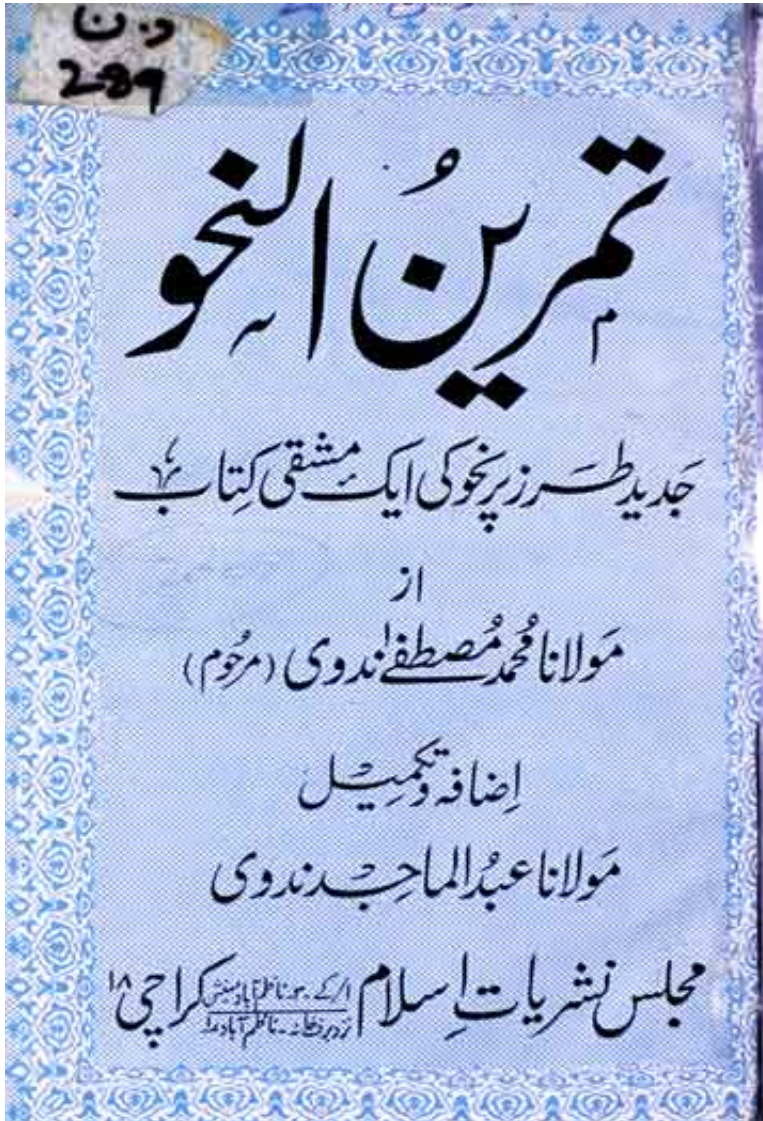 289
تمرینُ النحو
جدید طرز پر نحو کی ایک مشقی کتاب
از
مَولانا مُحمّد مُصطفےٰ ندوی (مرحُوم)
اِضافہ و تکمیل
مَولانا عبدُ الماجد ندوی
مجلس نشریاتِ اِسلام
ناظم آباد
کراچی ۱۸